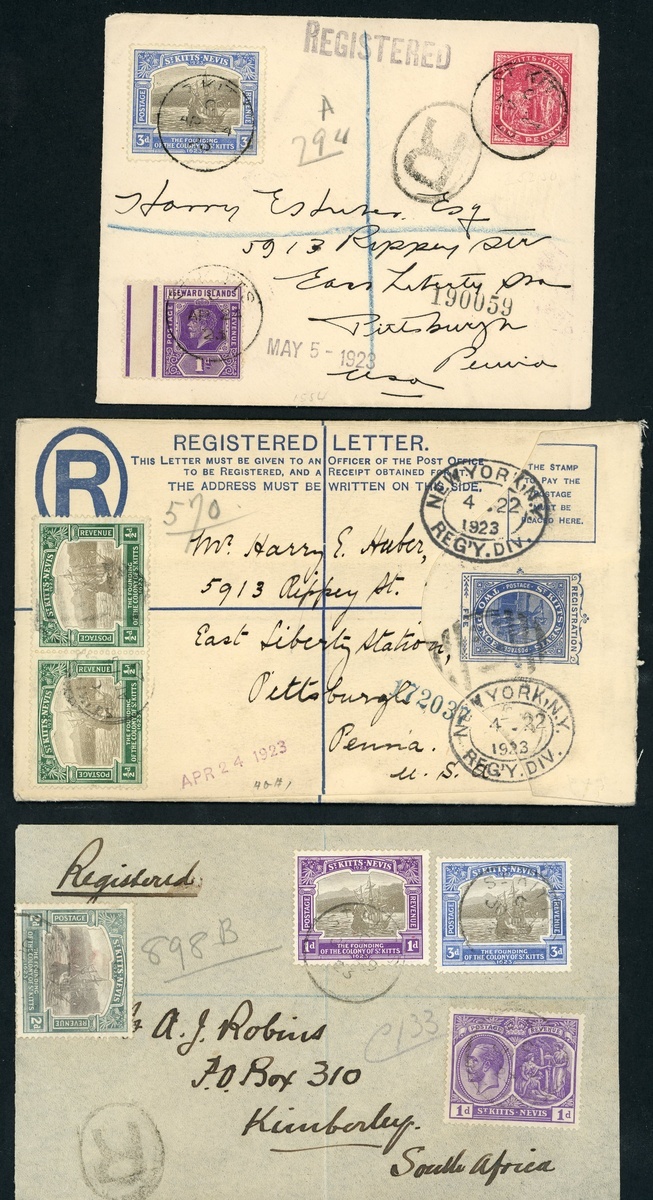 REGISTERED
ST KITTS-NEVIS
POSTAGE
REVENUE
3d
THE FOUNDING
OF THE COLONY OF ST KITTS
1623
3d
A
294
R
ST KITTS-NEVIS
PENNY
Harry E. Huber. Esq
5913 Rippey St
East Liberty Sta
190059
Pittsburgh
Penna
USA
MAY 5 - 1923
LEEWARD ISLANDS
POSTAGE
& REVENUE
1d
R
REGISTERED LETTER.
THIS LETTER MUST BE GIVEN TO AN OFFICER OF THE POST OFFICE
TO BE REGISTERED, AND A RECEIPT OBTAINED FOR IT.
THE ADDRESS MUST BE WRITTEN ON THIS SIDE.
THE STAMP
TO PAY THE
POSTAGE
MUST BE
PLACED HERE.
570
NEW YORK, N.Y.
4 22
1923
REG'Y. DIV.
Mr. Harry E. Huber,
5913 Rippey St.
East Liberty Station,
Pittsburgh
Penna.
U. S. A.
ST KITTS-NEVIS
REVENUE
POSTAGE
½d
THE FOUNDING
OF THE COLONY OF ST KITTS
½d
ST KITTS-NEVIS
REVENUE
POSTAGE
½d
THE FOUNDING
OF THE COLONY OF ST KITTS
½d
REGISTRATION
FEE
ST KITTS-NEVIS
POSTAGE
TWO PENCE
172037
NEW YORK, N.Y.
4 22
1923
REG'Y. DIV.
APR 24 1923
Registered.
898 B
ST KITTS-NEVIS
POSTAGE
REVENUE
1d
THE FOUNDING
OF THE COLONY OF ST KITTS
1623
1d
ST KITTS-NEVIS
POSTAGE
REVENUE
3d
THE FOUNDING
OF THE COLONY OF ST KITTS
1623
3d
ST KITTS-NEVIS
POSTAGE
REVENUE
2d
THE FOUNDING
OF THE COLONY OF ST KITTS
2d
A. J. Robins
P.O. Box 310
Kimberley.
South Africa
C133
POSTAGE
REVENUE
1d
ST KITTS-NEVIS
1d
R